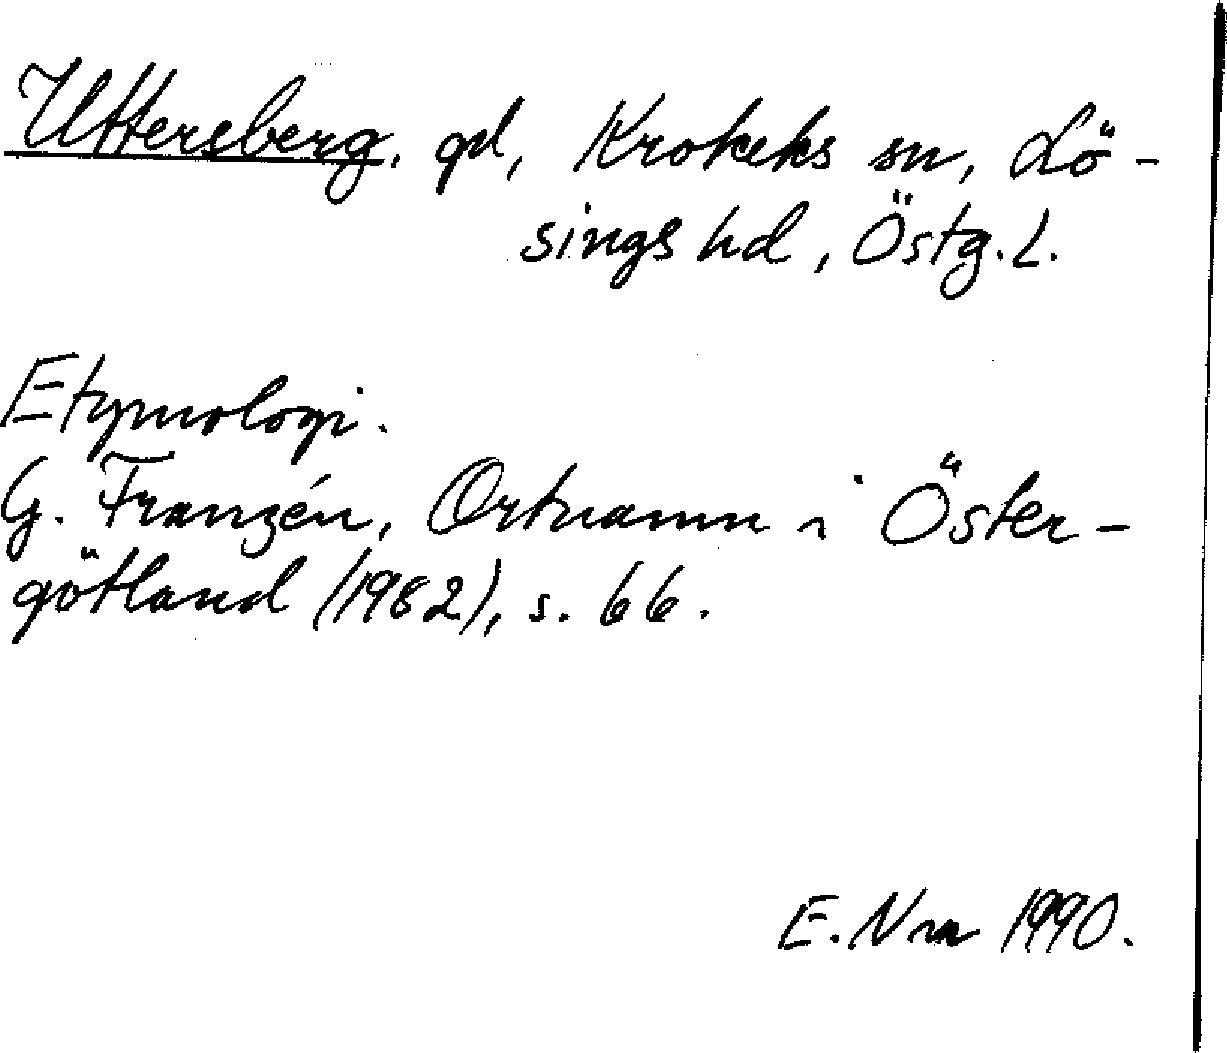 Uttersberg, gd, Krokeks sn, Lö-
sings hd, Östg.l.
Etymologi.
G. Franzén, Ortnamn i Öster-
götland (1982), s. 66.
E. Nm 1990.